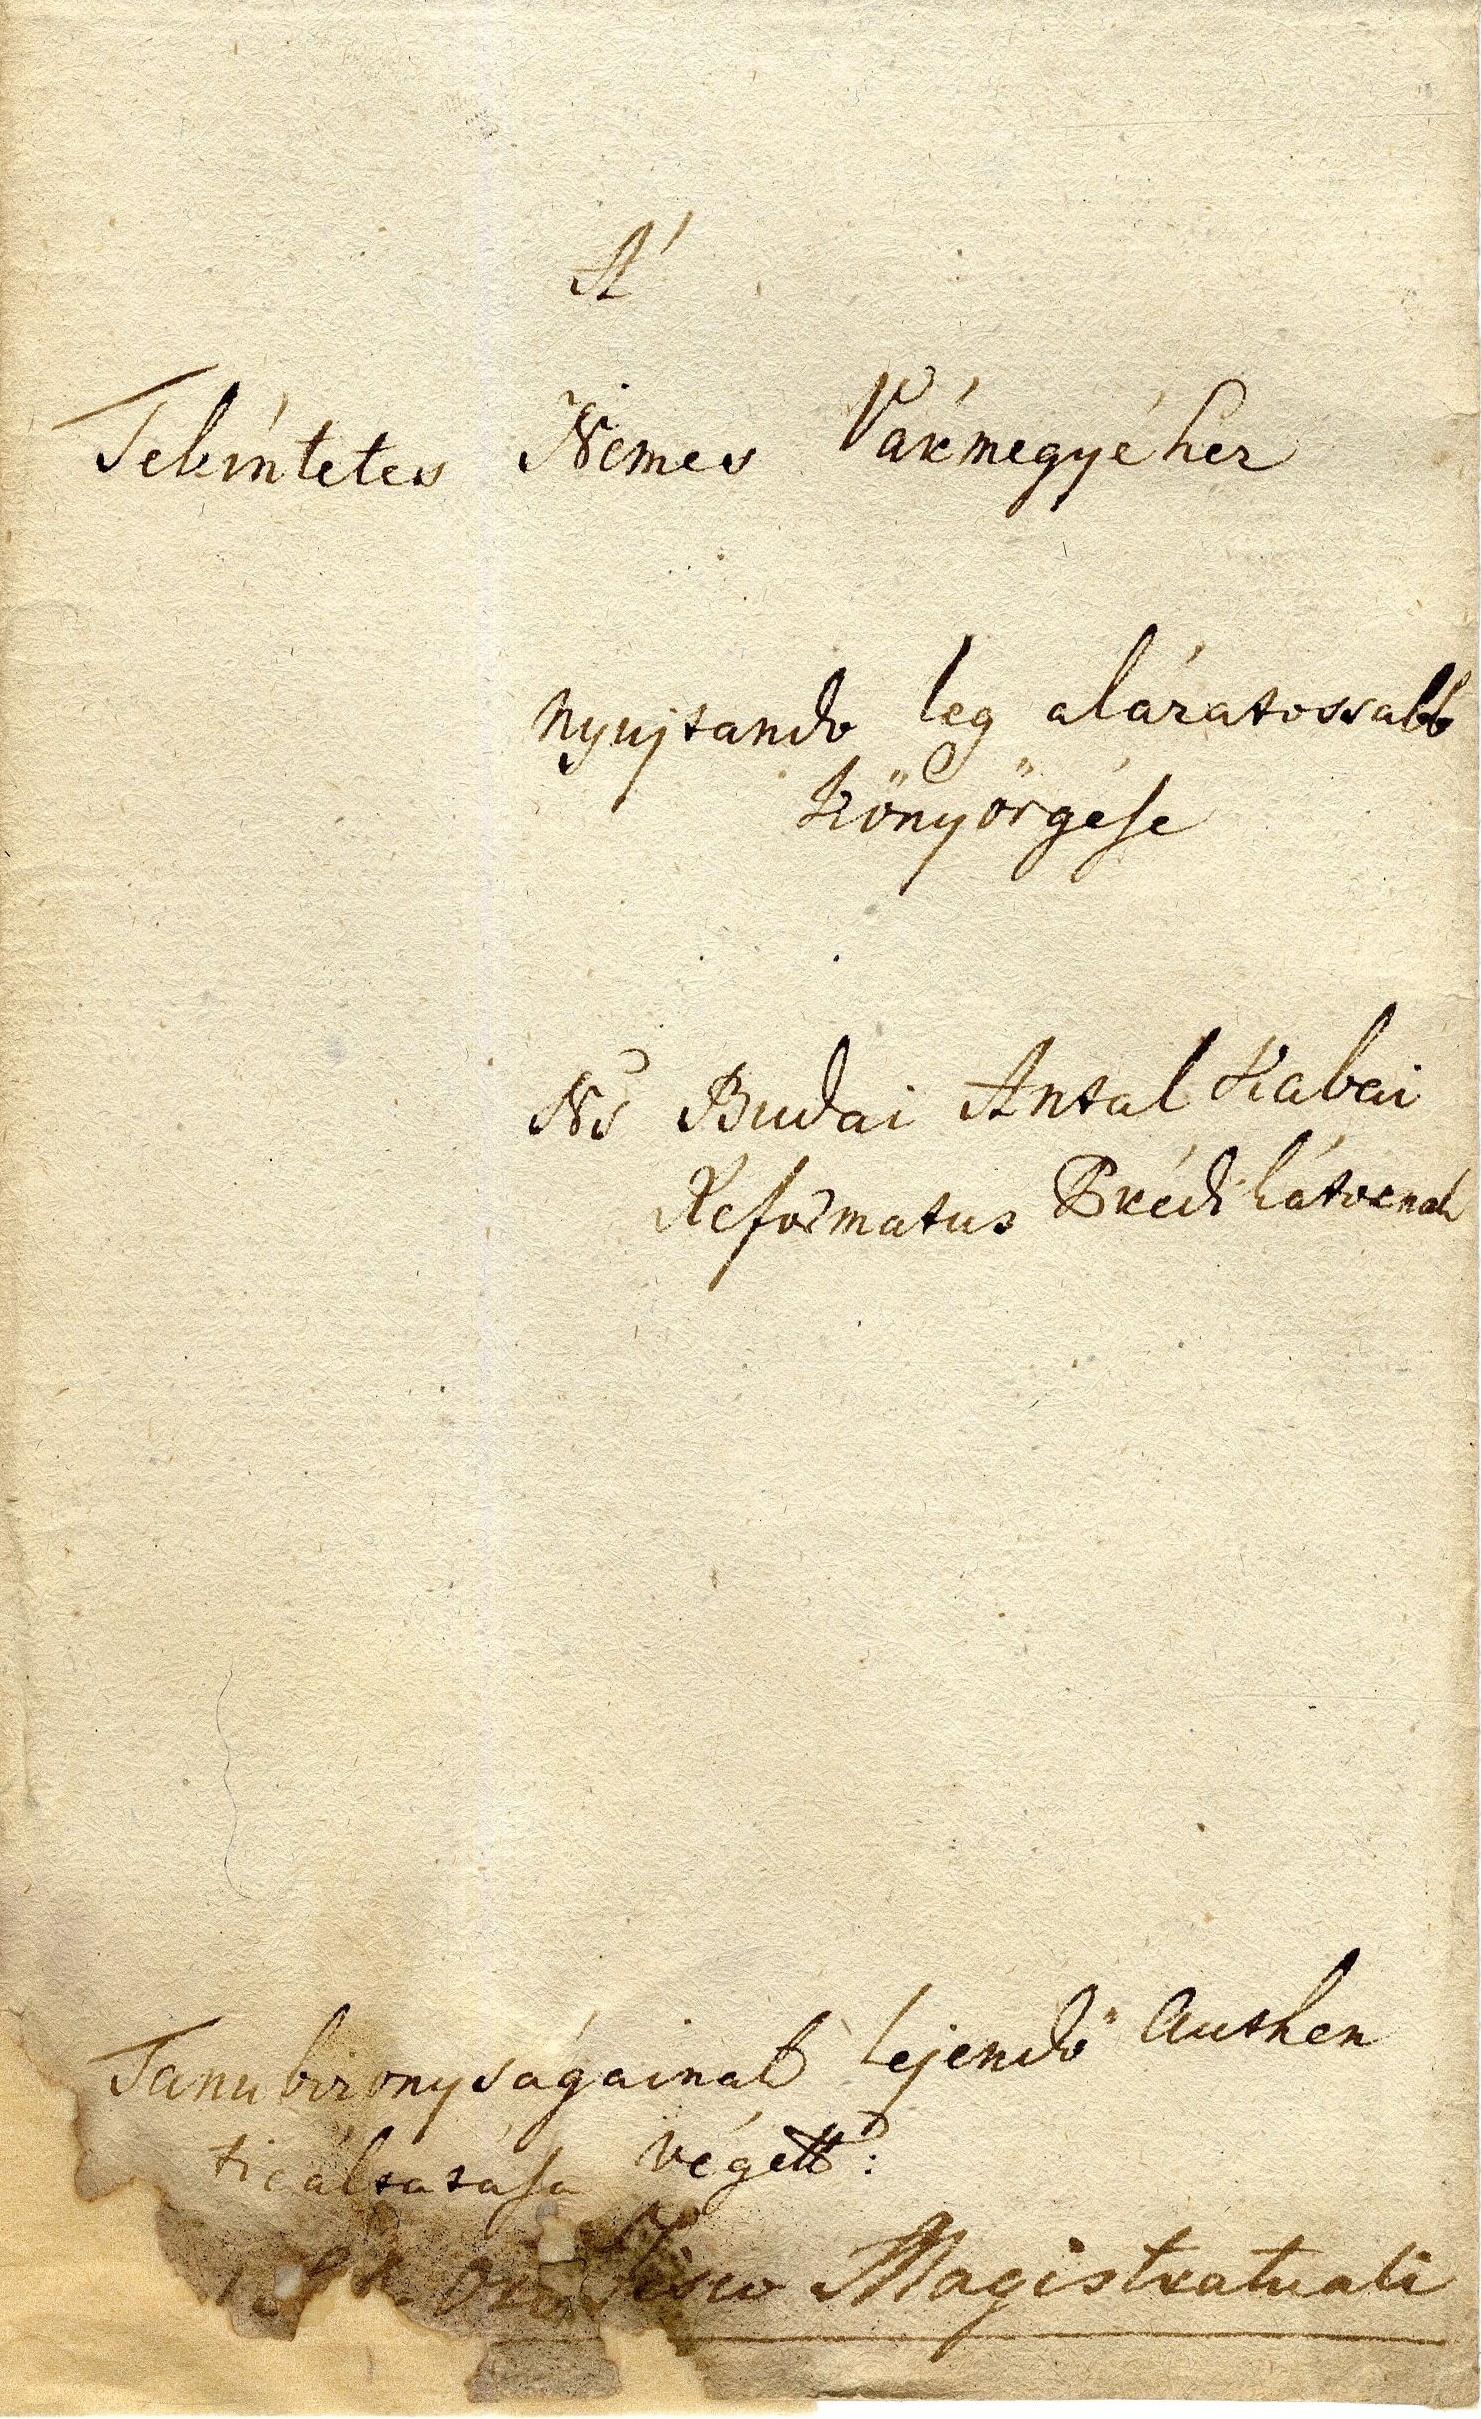 A'
Tekintetes Nemes Vármegyéhez
nyujtando leg alázatossabb
Könyörgése
Ns Budai Antal Kabai
Reformatus Prédikátornak
Tanubizonyságainak lejendő Authen
ticáltatása végett:
pro Fisco Magistratuali